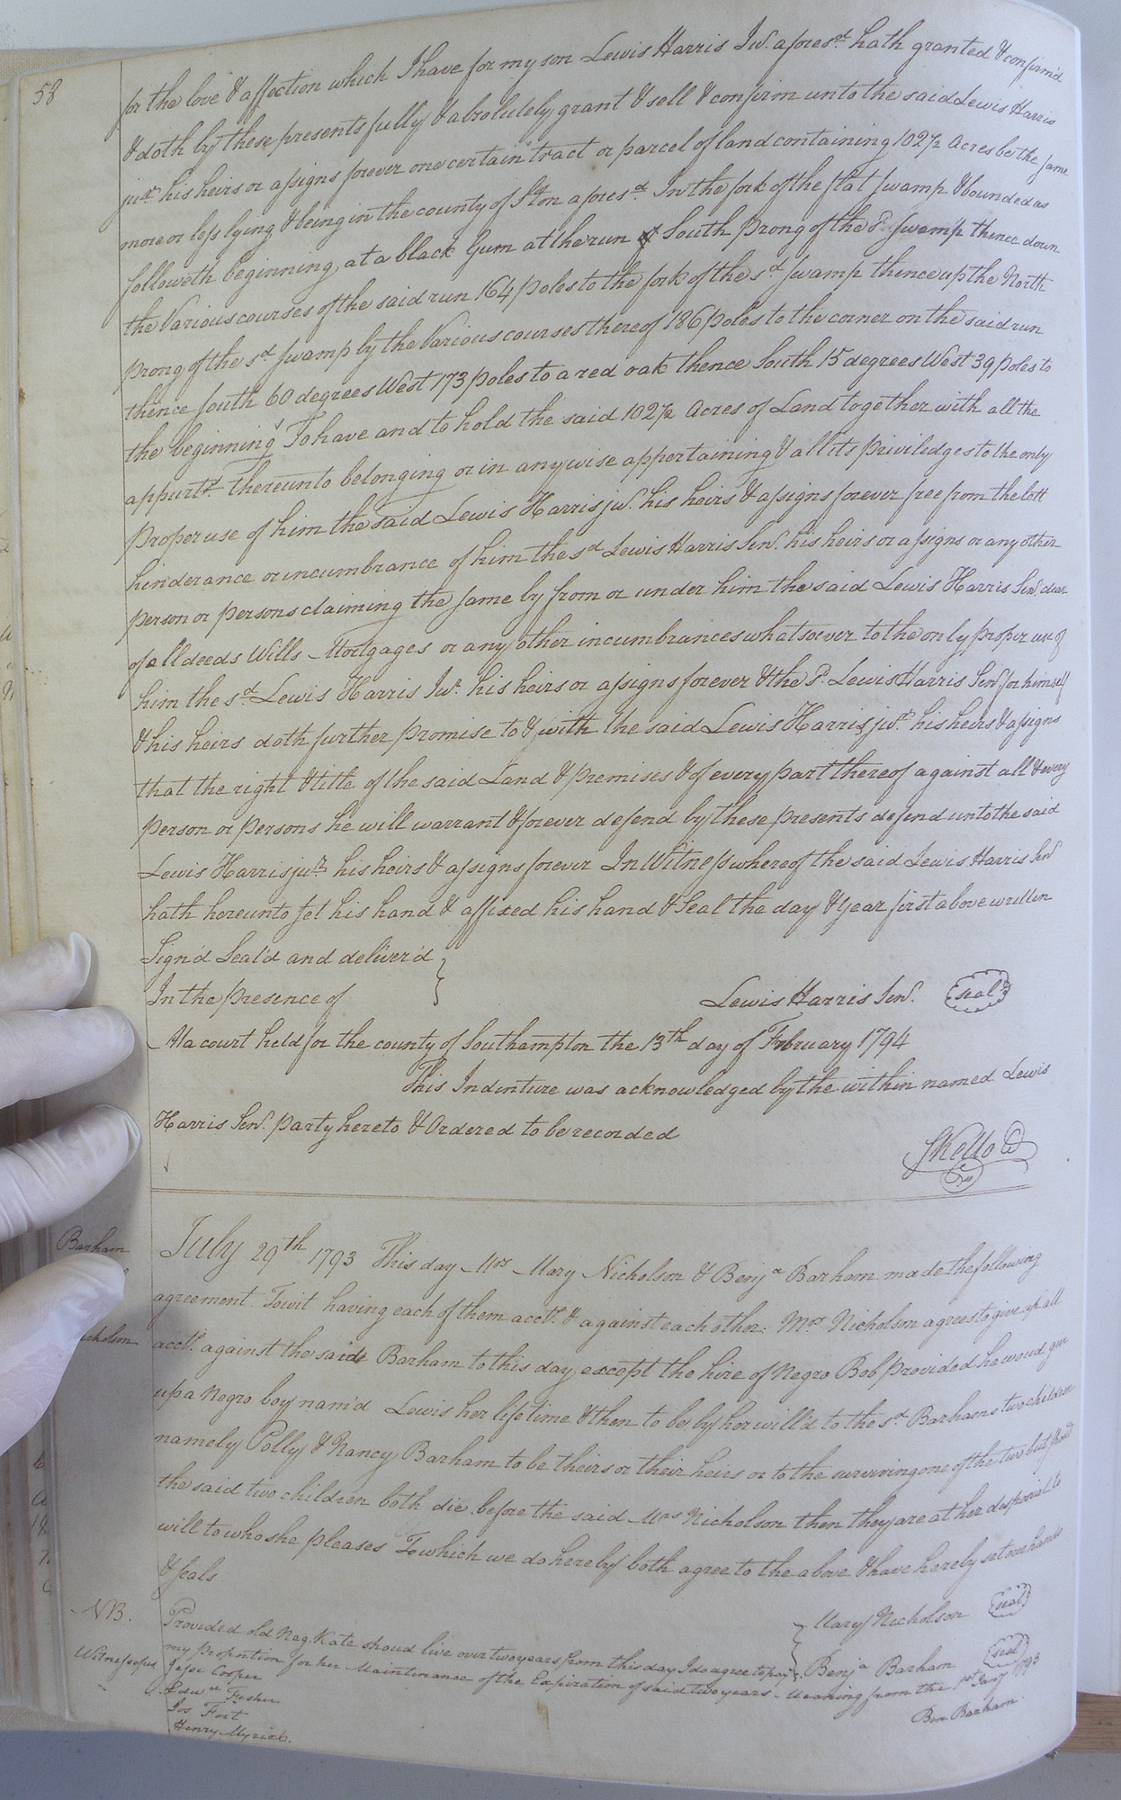 58
for the love & affection which I have for my son Lewis Harris Junr. aforesd. hath granted & confirm'd
& doth by these presents fully & absolutely grant & sell & confirm unto the said Lewis Harris
junr. his heirs or assigns forever one certain tract or parcel of land containing 102½ Acres be the same
more or less lying & being in the county of S'ton aforesd. In the fork of the flat swamp & bounded as
followeth beginning at a black Gum at the run of South prong of the sd. swamp thence down
the Various courses of the said run 164 poles to the fork of the sd. swamp thence up the North
prong of the sd. swamp by the Various courses thereof 186 poles to the corner on the said run
thence South 60 degrees West 173 poles to a red oak thence South 15 degrees West 39 poles to
the beginning To have and to hold the said 102½ Acres of Land together with all the
appurts. thereunto belonging or in any wise appertaining & all its priviledges to the only
Proper use of him the said Lewis Harris junr. his heirs & assigns forever free from the lett
hinderance or incumbrance of him the sd. Lewis Harris Senr. his heirs or assigns or any other
person or persons claiming the same by from or under him the said Lewis Harris Senr. clear
of all deeds Wills Mortgages or any other incumbrances whatsoever to the only proper use of
him the sd. Lewis Harris Junr. his heirs or assigns forever & the sd. Lewis Harris Senr. for himself
& his heirs doth further promise to & with the said Lewis Harris junr. his heirs & assigns
that the right & title of the said Land & premises & of every part thereof against all & every
person or persons he will warrant & forever defend by these presents defend unto the said
Lewis Harris junr. his heirs & assigns forever In Witness whereof the said Lewis Harris Senr.
hath hereunto set his hand & affixed his hand & Seal the day & year first above written
Sign'd Seal'd and deliver'd }
In the presence of
Lewis Harris Senr. seal
At a court held for the county of Southampton the 13th day of February 1794
This Indenture was acknowledged by the within named Lewis
Harris Senr. party hereto & Ordered to be recorded
Barham
July 29th 1793 This day Mrs Mary Nicholson & Benja. Barham made the following
agreement. Towit having each of them accts. & against each other: Mrs. Nicholson agrees to give up all
accts. against the said Barham to this day except the hire of Negro Bob provided he woud give
up a Negro boy nam'd Lewis her life time & then to be by her will'd to the sd. Barham's two children
namely Polly & Nancy Barham to be theirs or their heirs or to the surviving one of the two but shoud
the said two children both die before the said Mrs Nicholson then they are at her desposial to
will to who she pleases To which we do hereby both agree to the above & have hereby set our hands
& seals
Mary Nicholson seal
Benja Barham seal
NB. Provided old Neg. Kate shoud live over two years from this day I do agree to pay
my proportion for her Maintenance of the Expiration of said two years - Meaning from the 1st Jany 1793
Ben Barham
Jesse Cooper
Edwd. Fisher
Jos Fort
Henry Myrick.